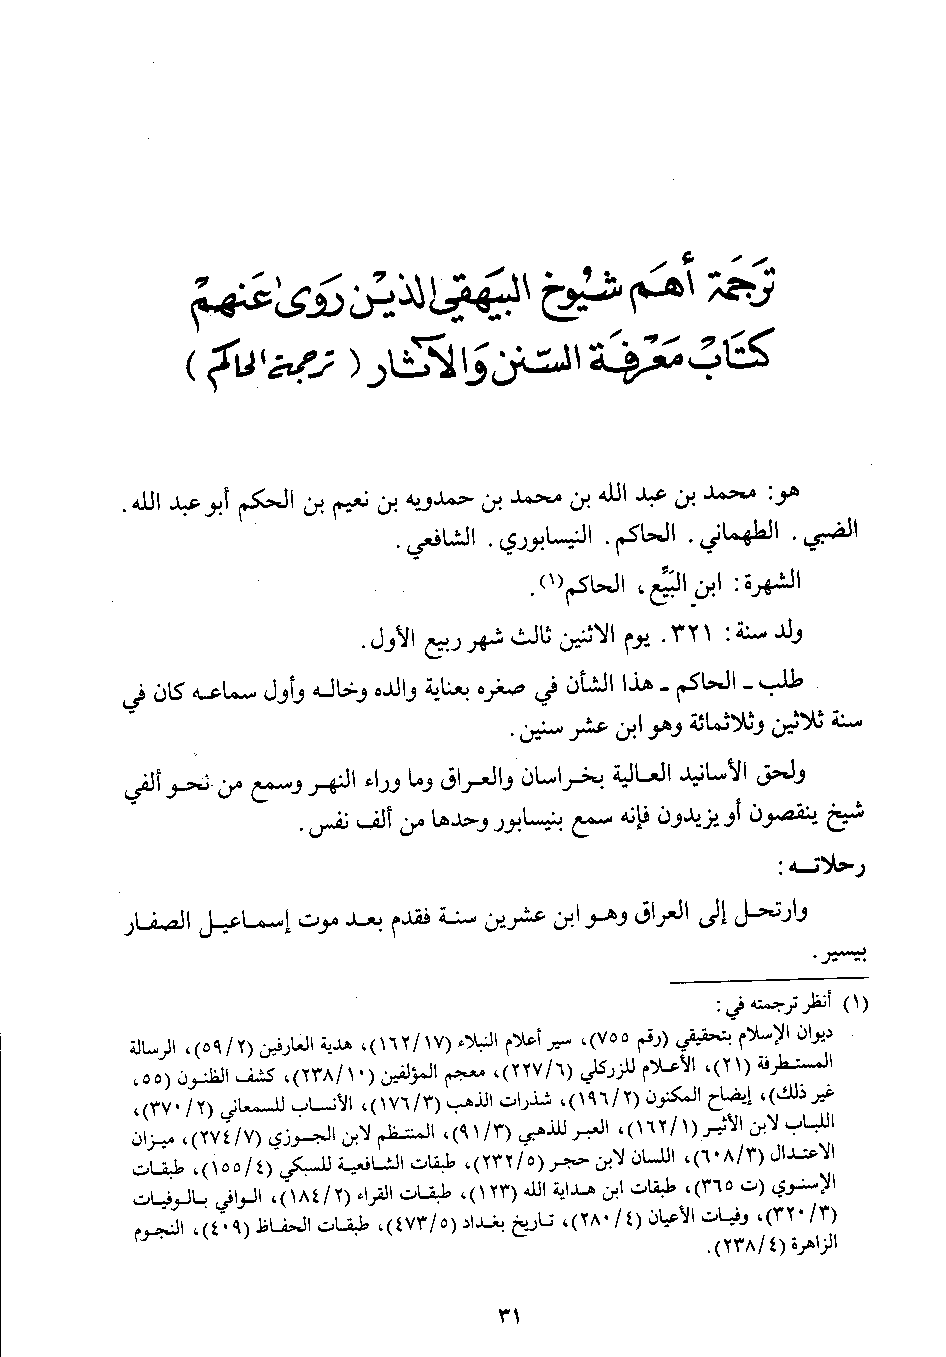 ترجمة أهم شيوخ البيهقي الذين روى عنهم
كتاب معرفة السنن والآثار ( ترجمة الحاكم )
هو: محمد بن عبد الله بن محمد بن حمدويه بن نعيم بن الحكم أبو عبد الله.
الضبي. الطهماني. الحاكم. النيسابوري. الشافعي.
الشهرة: ابن البَيِّع، الحاكم(١).
ولد سنة: ٣٢١. يوم الاثنين ثالث شهر ربيع الأول.
طلب - الحاكم - هذا الشأن في صغره بعناية والده وخاله وأول سماعه كان في
سنة ثلاثين وثلاثمائة وهو ابن عشر سنين.
ولحق الأسانيد العالية بخراسان والعراق وما وراء النهر وسمع من نحو ألفي
شيخ ينقصون أو يزيدون فإنه سمع بنيسابور وحدها من ألف نفس.
رحلاته:
وارتحل إلى العراق وهو ابن عشرين سنة فقدم بعد موت إسماعيل الصفار
بيسير.
(١) أنظر ترجمته في:
ديوان الإسلام بتحقيقي (رقم ٧٥٥)، سير أعلام النبلاء (١٦٢/١٧)، هدية العارفين (٥٩/٢)، الرسالة
المستطرفة (٢١)، الأعلام للزركلي (٢٢٧/٦)، معجم المؤلفين (٢٣٨/١٠)، كشف الظنون (٥٥،
غير ذلك)، إيضاح المكنون (١٩٦/٢)، شذرات الذهب (١٧٦/٣)، الأنساب للسمعاني (٣٧٠/٢)،
اللباب لابن الأثير (١٦٢/١)، العبر للذهبي (٩١/٣)، المنتظم لابن الجوزي (٢٧٤/٧)، ميزان
الاعتدال (٦٠٨/٣)، اللسان لابن حجر (٢٣٢/٥)، طبقات الشافعية للسبكي (١٥٥/٤)، طبقات
الإسنوي (ت ٣٦٥)، طبقات ابن هداية الله (١٢٣)، طبقات القراء (١٨٤/٢)، الوافي بالوفيات
(٣٢٠/٣)، وفيات الأعيان (٢٨٠/٤)، تاريخ بغداد (٤٧٣/٥)، طبقات الحفاظ (٤٠٩)، النجوم
الزاهرة (٢٣٨/٤).
٣١